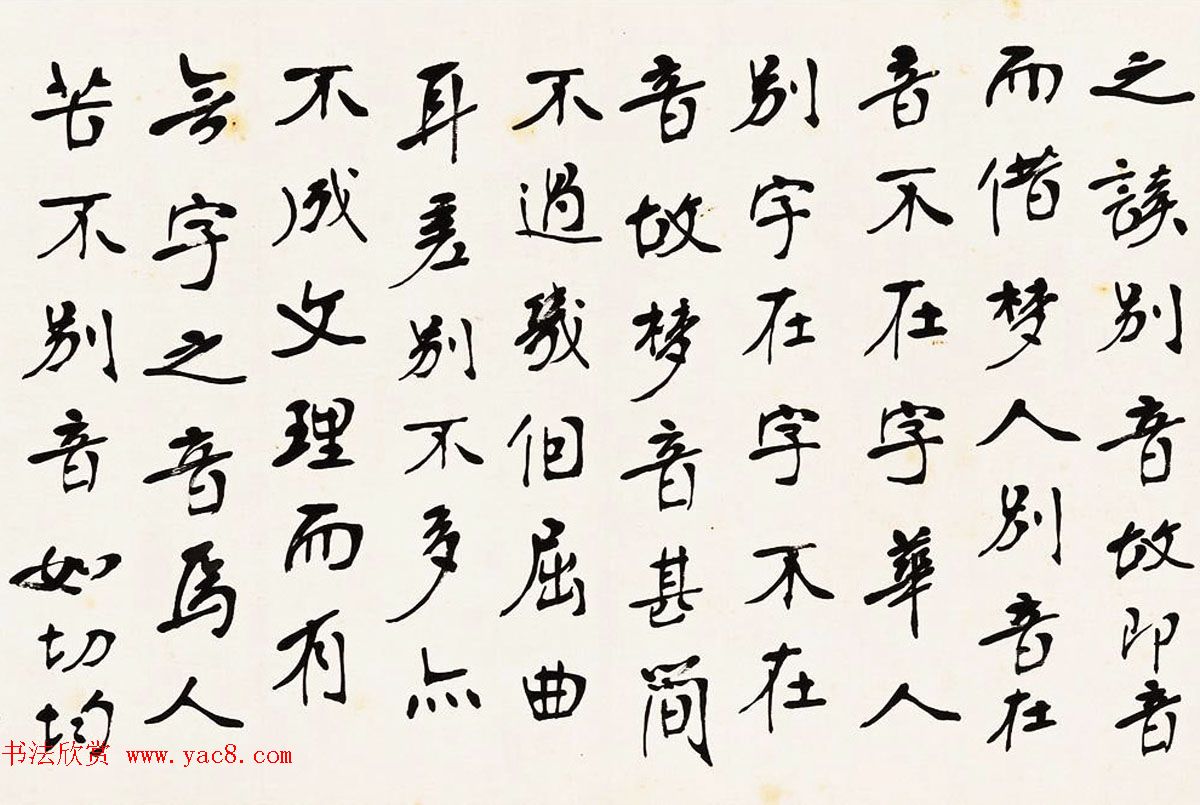 之談別音故即音
而借梵人別音在
音不在字華人
別字在字不在
音故梵音甚簡
不過幾個屈曲
耳差別不多亦
不成文理而有
無字之音焉人
苦不別音如切均
书法欣赏 www.yac8.com